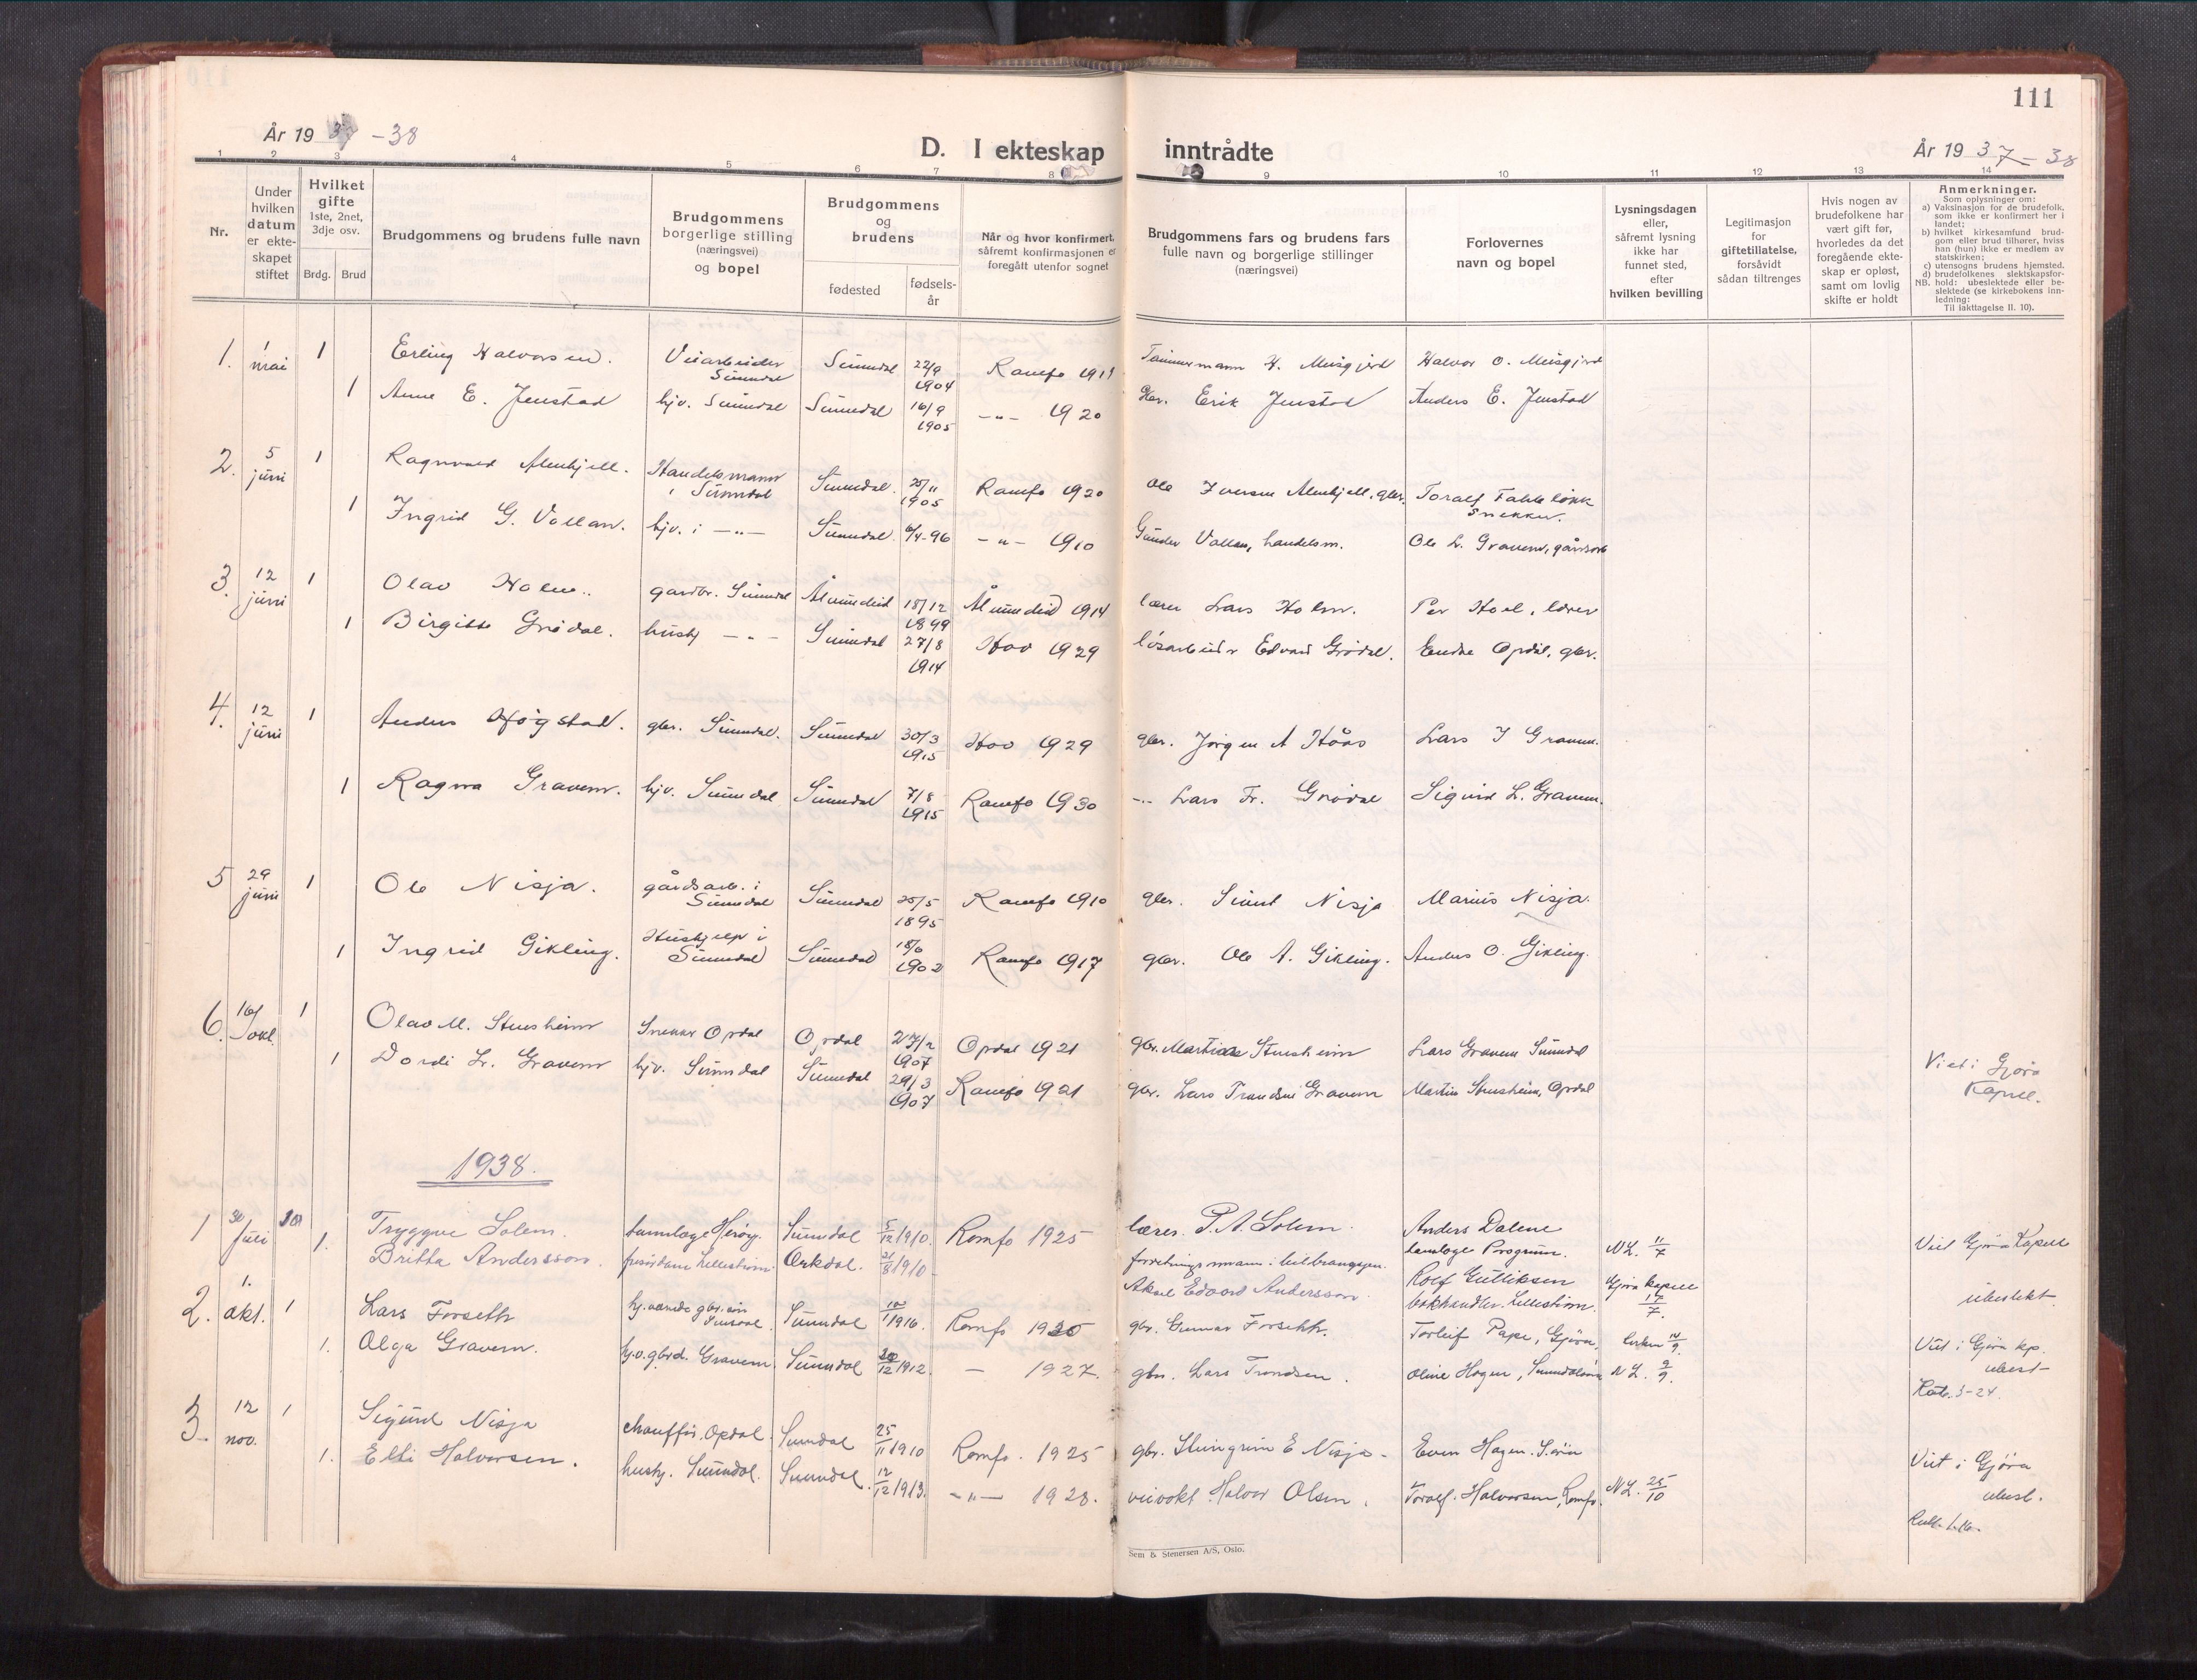 111
År 19 37 - 38
D. I ekteskap inntrådte
År 19 37 - 38
1 2 3 4 5 6 7 8 9 10 11 12 13 14
Nr.
Under hvilken datum er ekteskapet stiftet
Hvilket gifte
1ste, 2net, 3dje osv.
Brdg. Brud
Brudgommens og brudens fulle navn
Brudgommens borgerlige stilling (næringsvei) og bopel
Brudgommens og brudens
fødested
fødsels-år
Når og hvor konfirmert,
såfremt konfirmasjonen er
foregått utenfor sognet
Brudgommens fars og brudens fars
fulle navn og borgerlige stillinger
(næringsvei)
Forlovernes
navn og bopel
Lysningsdagen
eller,
såfremt lysning
ikke har
funnet sted,
efter
hvilken bevilling
Legitimasjon
for
giftetillatelse,
forsåvidt
sådan tiltrenges
Hvis nogen av
brudefolkene har
vært gift før,
hvorledes da det
foregående ekte-
skap er opløst,
samt om lovlig
skifte er holdt
Anmerkninger.
Som oplysninger om:
a) Vaksinasjon for de brudefolk,
som ikke er konfirmert her i
landet;
b) hvilket kirkesamfund brud-
gom eller brud tilhører, hviss
han (hun) ikke er medlem av
statskirken;
c) utensogns brudens hjemsted.
d) brudefolkenes slektskapsfor-
NB. hold: ubeslektede eller be-
slektede (se kirkebokens inn-
ledning:
Til iakttagelse II. 10).
1. 1 mai 1 Erling Halvorsen. Veiarbeider Sunndal Sunndal 22/9 1904 Romfo 1919 Tømmermann H. Musgjerd Halvor O. Musgjerd
1 Anne E. Jenstad hjv. Sunndal Sunndal 16/9 1905 -"- 1920 gbr. Erik Jenstad Anders E. Jenstad
2. 5 juni 1 Ragnvald Almskjell. Handelsmann i Sunndal Sunndal 25/11 1905 Romfo 1920 Ole Iversen Almskjell, gbr. Toralf Fahle snekker.
1 Ingrid G. Vollan. hjv. i -"- Sunndal 6/4-96 -"- 1910 Gunder Vollan, handelsm. Ole L. Gravem, gårdsarb
3. 12 juni 1 Olav Holm. gardbr. Sunndal Ålvundeid 18/12 1899 Ålvundeid 1914 lærer Lars Holm. Per Hoel, lærer
1 Birgitte Grødal. hushj -"- Sunndal 27/8 1914 Hov 1929 løsarbeider Edvard Grødal. Endre Opdøl, gbr.
4. 12 juni 1 Anders Høgstad. gbr. Sunndal. Sunndal 30/3 1915 Hov 1929 gbr. Jørgen A Håås Lars I Gravem.
1 Ragna Gravem. hjv. Sunndal Sunndal 7/8 1915 Romfo 1930 -"- Lars Tr. Grødal Sigurd L. Gravem.
5 29 juni 1 Ole Nisja. gårdsarb. i Sunndal Sunndal 25/5 1895 Romfo 1910 gbr. Sivert Nisja Marius Nisja.
1 Ingrid Gikling. Hushjelp i Sunndal Sunndal 18/6 1902 Romfo 1917 gbr. Ole A. Gikling. Anders O. Gikling.
6. 16/okt. 1 Olav M. Stensheim Snekker Opdal Opdal 27/2 1907 Opdal 1921 gbr. Martin Stensheim Lars Gravem Sunndal
1 Dordi L. Gravem hjv. Sunndal Sunndal 29/3 1907 Romfo 1921 gbr. Lars Trondsen Gravem Martin Stensheim, Opdal Viet i Gjøra Kapell.
1938.
1 30/juli Tryggve Solem. tannlæge Sunndal 5/12 1910. Romfo 1925 lærer P. A. Solem. Anders Dalene
1. Britta Andersson. frisørdame Lillestrøm. Orkdal. 21/8 1910 forretningsmann i bilbransjen. N L. 11/7 Viet Gjøra Kapell
Aksel Edvard Andersson. Rolf Gulliksen bokhandler. Lillestrøm. Gjøra kapell 17/7. ubeslekt.
2. 1. okt. 1 Lars Forseth Sunndal 1916. Romfo 1930 gbr. Gunnar Forseth. Torleif Pape, Gjøra, 9. Viet i Gjøra kp.
1. Olga Gravem. Gravem. Sunndal 20/12 1912. — 1927. gbr. Lars Trondsen. Oline Hagen, N L. 9/9. ubesl-
3. 12 nov. 1 Sigurd Nisja chauffør, Opdal. Sunndal 25/11 1910 Romfo. 1925 gbr. E Nisja - Even Hagen. Viet i Gjøra
1. Elli Halvorsen. hushj. Sunndal. Sunndal. 12/12 1913. -"- 1928. veivokt. Halvor Olsen. Toralf. Halvorsen, Romfo. N L. 25/10 ubesl.
Sem & Stenersen A/S, Oslo.